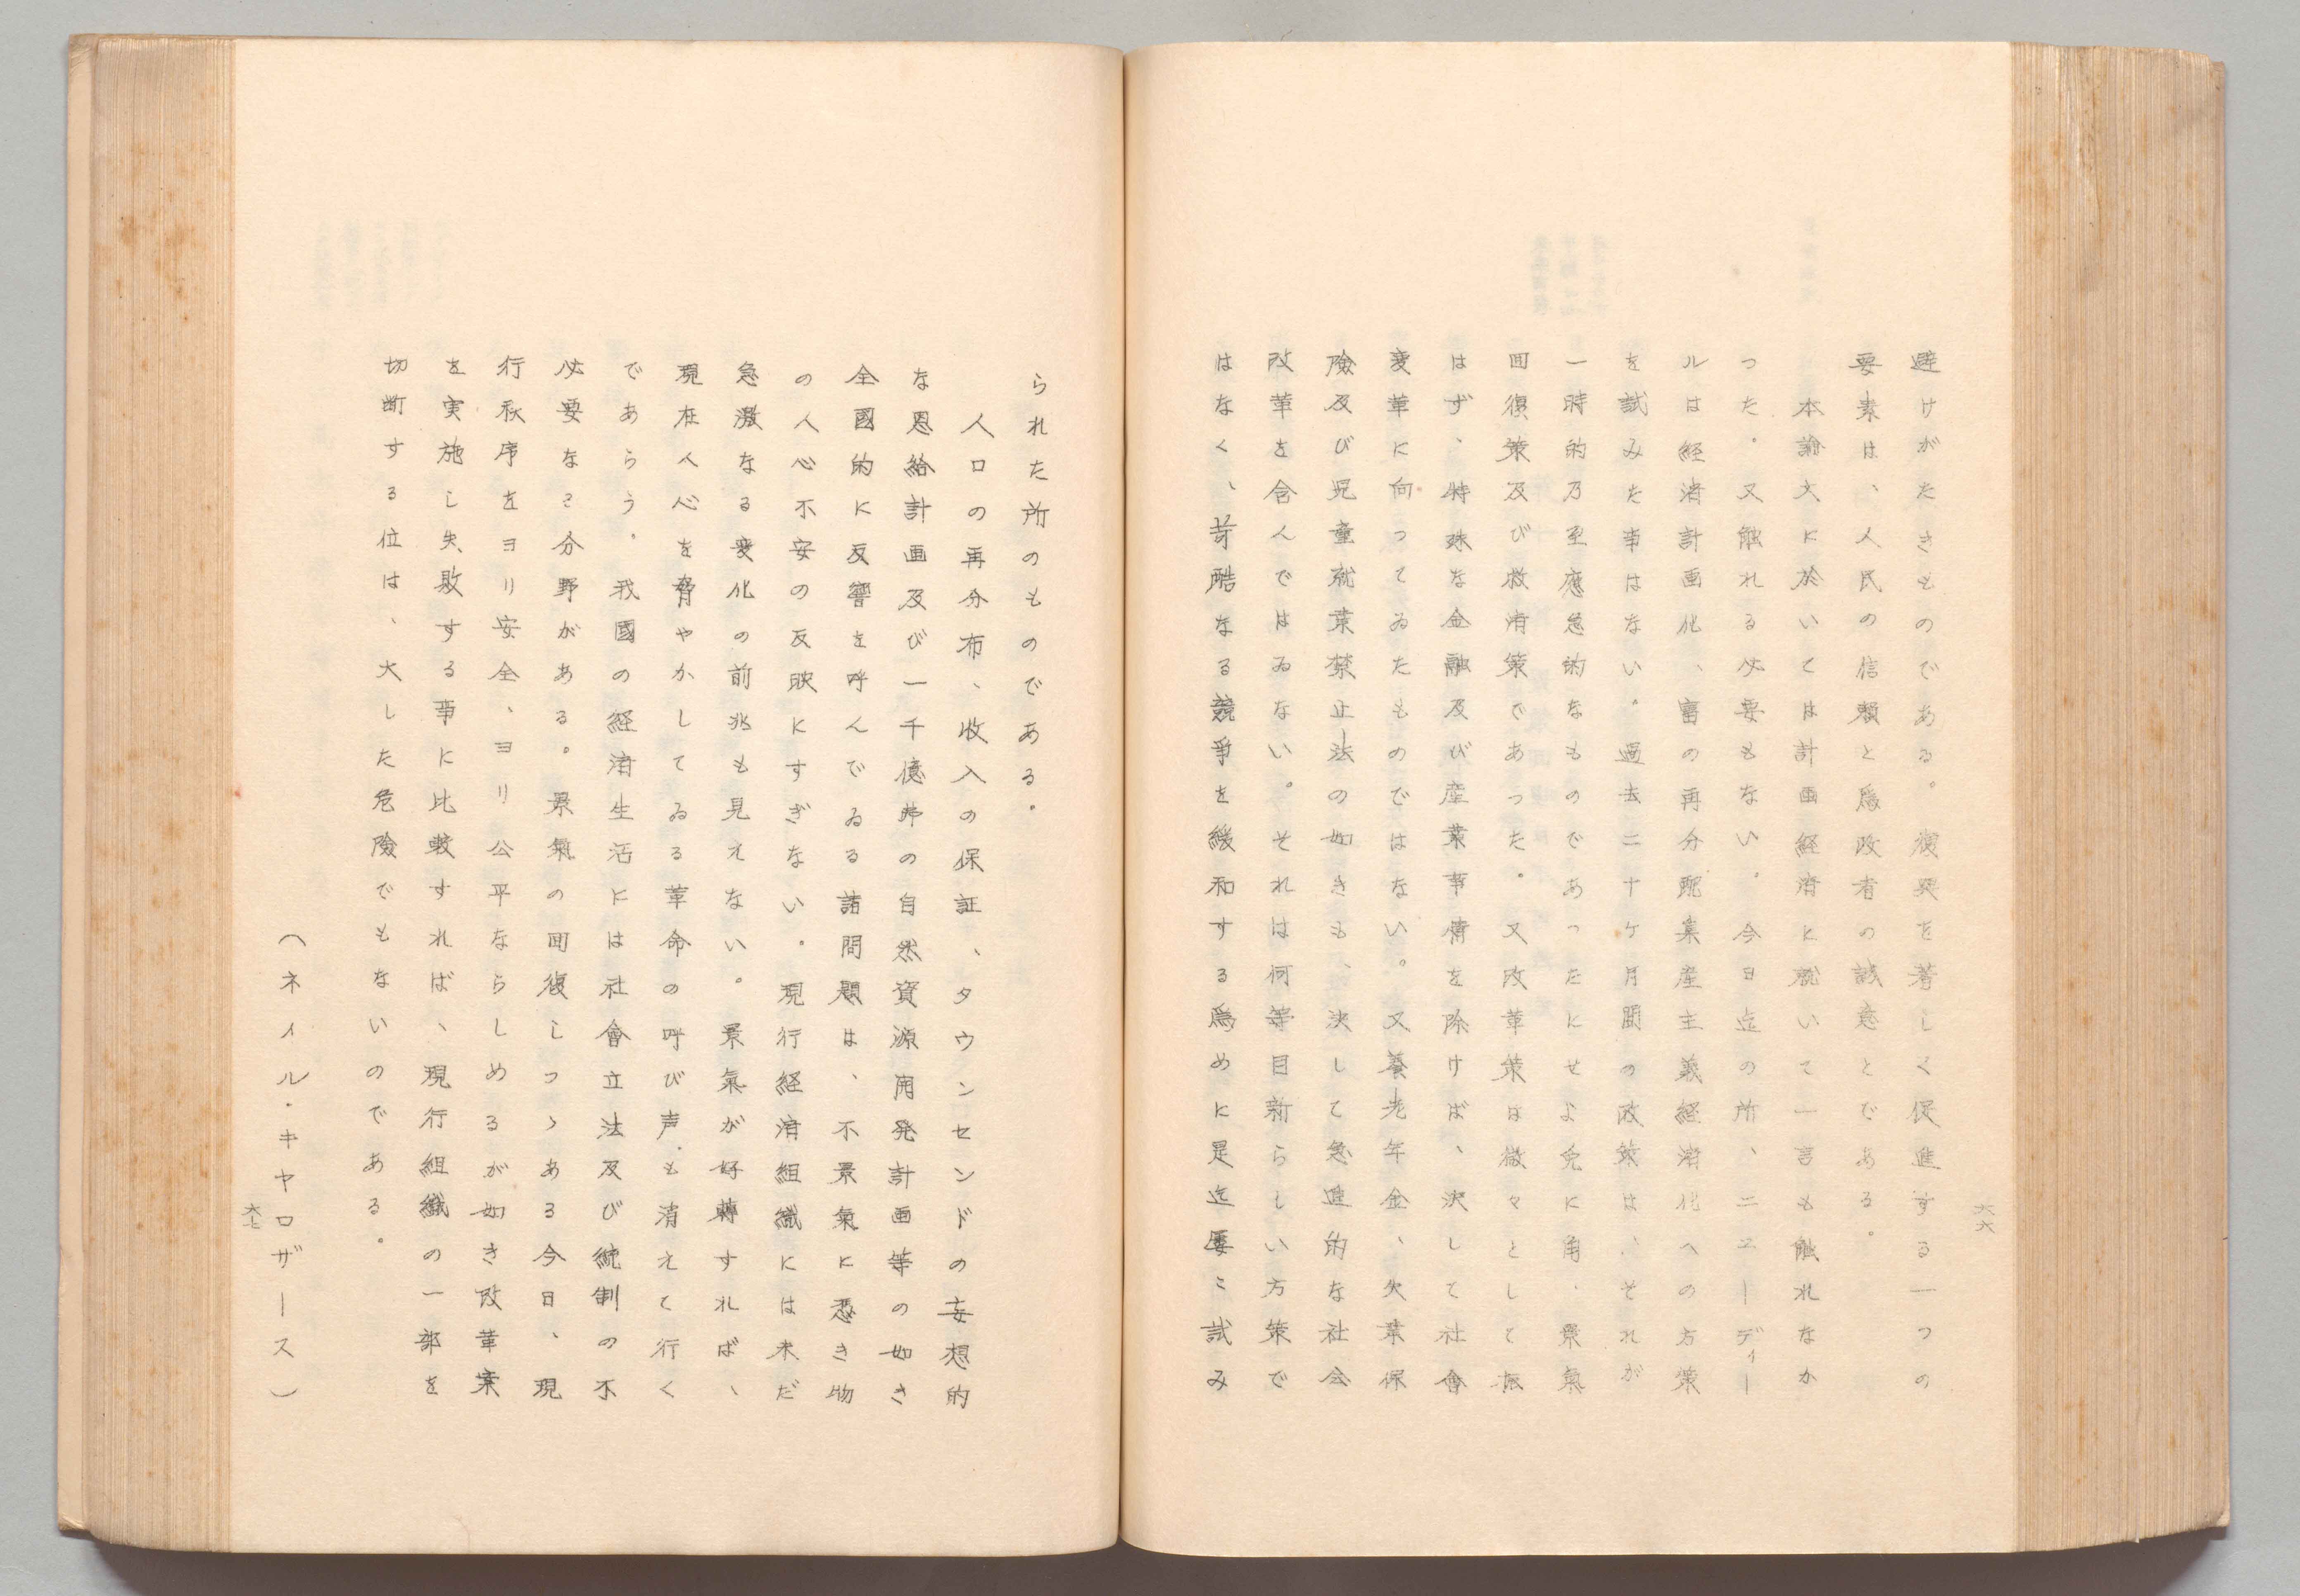 避けがたきものである。復興を著しく促進する一つの
要素は、人民の信頼と為政者の誠意とである。
本論文に於いては計画経済に就いて一言も触れなか
った。又触れる必要もない。今日迄の所、ニューディー
ルは経済計画化、富の再分配集産主義経済化への方策
を試みた事はない。過去二十ケ月間の政策は、それが
一時的乃至應急的なものであったにせよ兎に角、景氣
回復策及び救済策であった。又改革策は微々として振
はず、特殊な金融及び産業事情を除けば、決して社會
変革に向ってゐたものではない。又養老年金、失業保
險及び児童就業禁止法の如きも、決して急進的な社会
改革を含んではゐない。それは何等目新らしい方策で
はなく、苛酷なる競爭を緩和する爲めに是迄屡々試み
六六
られた所のものである。
人口の再分布、收入の保証、タウンセンドの妄想的
な恩給計画及び一千億弗の自然資源開発計画等の如き
全國的に反響を呼んでゐる諸問題は、不景氣に憑き物
の人心不安の反映にすぎない。現行経済組織には未だ
急激なる変化の前兆も見えない。景氣が好轉すれば、
現在人心を脅やかしてゐる革命の呼び声も消えて行く
であらう。我國の経済生活には社會立法及び統制の不
必要なる分野がある。景氣の回復しつゝある今日、現
行秩序をヨリ安全、ヨリ公平ならしめるが如き改革案
を実施し失敗する事に比較すれば、現行組織の一部を
切断する位は、大した危險でもないのである。
（ネイル・キャロザース）
六七